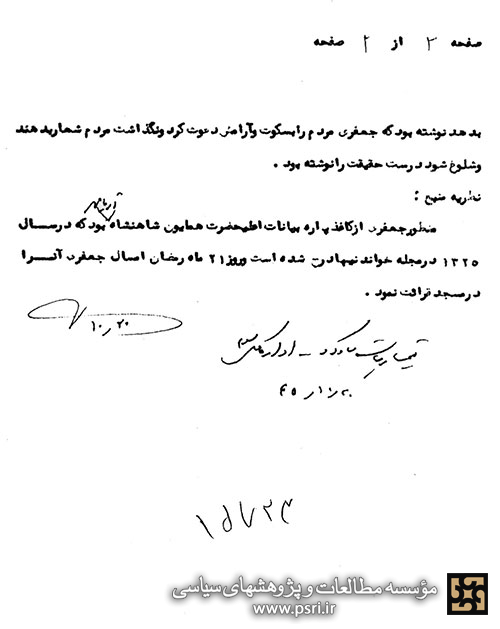 صفحه ۲ از ۲ صفحه
بدهد نوشته بود که جعفری مردم را بسکوت و آرامش دعوت کرد و نگذاشت مردم شعار بدهند
و شلوغ شود درست حقیقت را نوشته بود .
نظریه منبع :
آریامهر
منظور جعفری از کاغذ پاره بیانات اعلیحضرت همایون شاهنشاه بود که در سال
۱۳۲۵ در مجله خواندنیها درج شده است و روز ۲۱ ماه رمضان امسال جعفری آنرا
در مسجد قرائت نمود .
۱۰٫۲۰
۴۵
مؤسسه مطالعات و پژوهشهای سیاسی
www.psri.ir